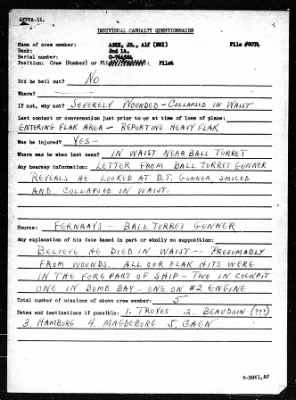 AFPPA-11,
INDIVIDUAL CASUALTY QUESTIONNAIRE
Name of crew member: JR., Alf (NMI) File #8074
Rank: 2nd Lt.
Serial number:
Position: Crew (Bomber) or Pilot
Did he bail out? NO
Where?
If not, why not? SEVERELY WOUNDED - COLLAPSED IN WAIST
Last contact or conversation just prior to or at time of loss of plane:
ENTERING FLAK AREA - REPORTING HEAVY FLAK
Was he injured? YES -
Where was he when last seen? IN WAIST NEAR BALL TURRET
Any hearsay information: LETTER FROM BALL TURRET GUNNER
REVEALS HE LOOKED AT B.T. GUNNER, SMILED
AND COLLAPSED IN WAIST.
Source: FERNAAYS - BALL TURRET GUNNER
Any explanation of his fate based in part or wholly on supposition:
BELIEVE HE DIED IN WAIST -- PRESUMABLY
FROM WOUNDS. ALL OUR FLAK HITS WERE
IN THE FOREPART OF SHIP - TWO IN COCKPIT
ONE IN BOMB BAY - ONE ON #2 ENGINE
Total number of missions of above crew member: 5
Dates and destinations if possible: 1. TROYES 2. BEAUDOIN (???)
3. HAMBURG 4. MAGDEBURG 5. CAEN
6-3861,AF